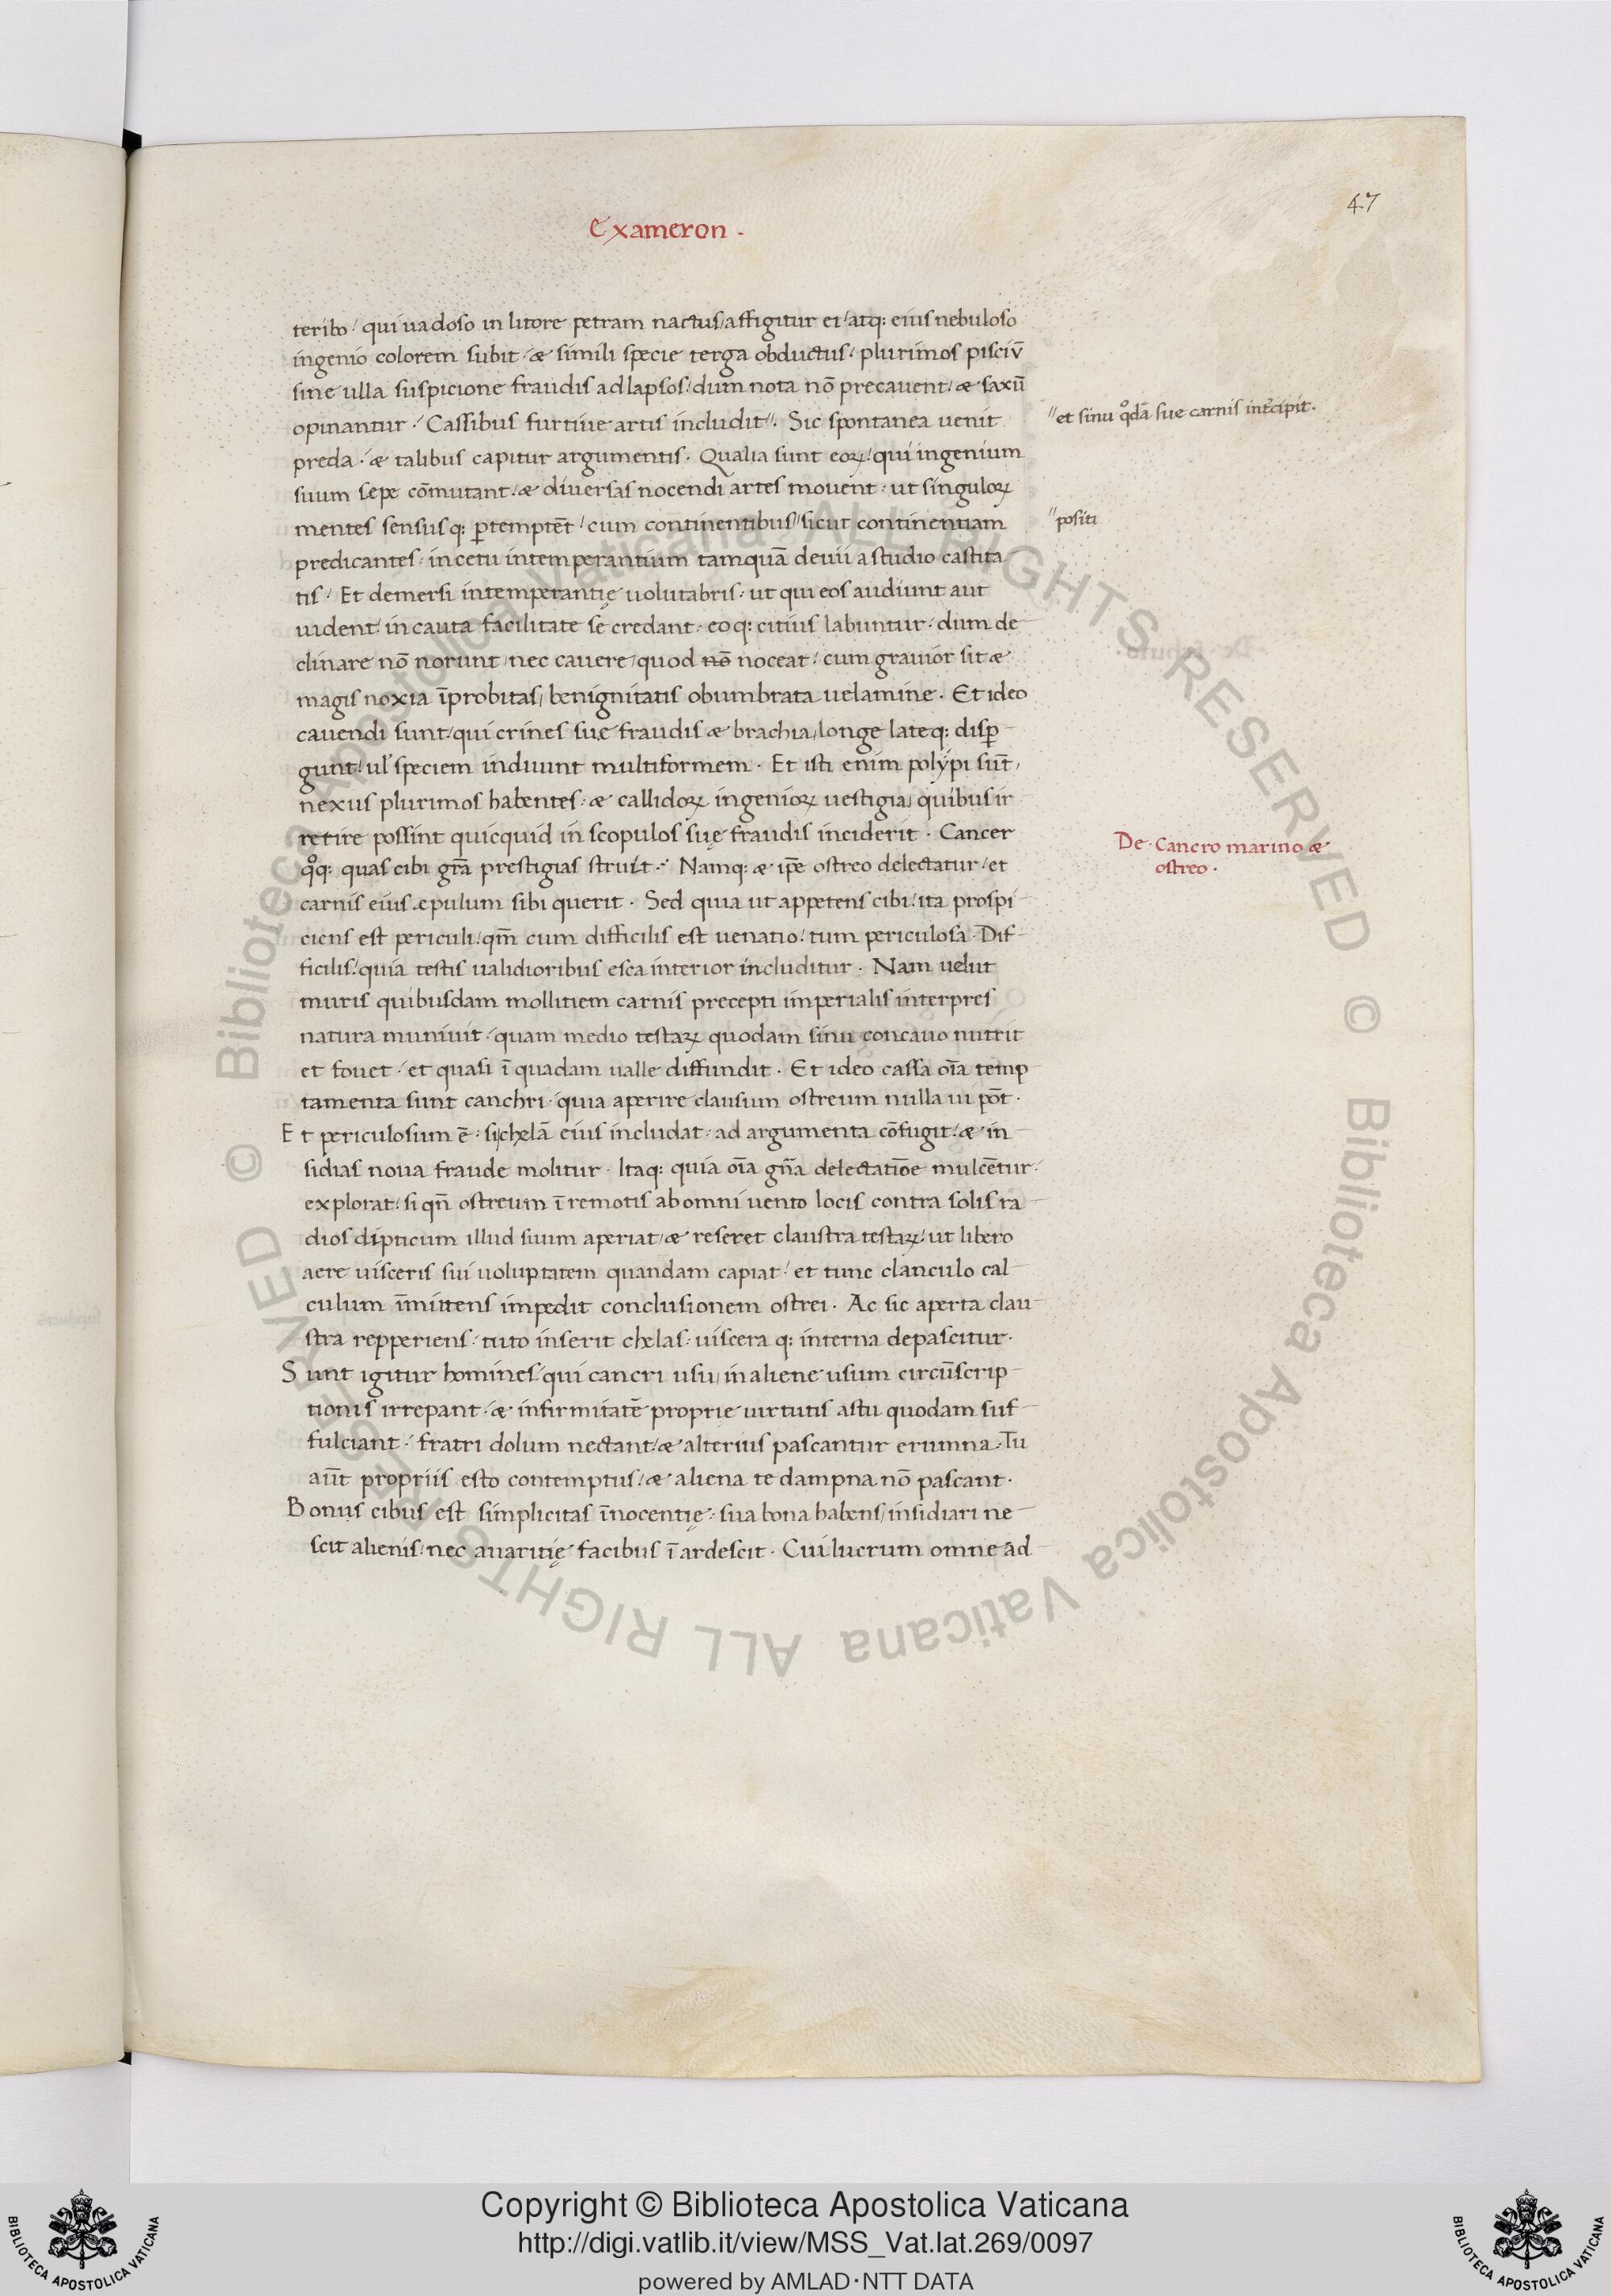 47
Exameron .
teribo / qui uadoso in litore petram nactus / affigitur ei / atq: eius nebuloso
ingenio colorem subit · & simili specie terga obductus · plurimos pisciū
sine ulla suspicione fraudis adlapsos / dum nota nō precauent / & saxū
opinantur · Cassibus furtiue artis includit″. Sic spontanea uenit
″et sinu qͦdā sue carnis int̄cipit.
preda · & talibus capitur argumentis . Qualia sunt eoꝝ / qui ingenium
suum sepe cōmutant / & diuersas nocendi artes mouent · ut singuloꝝ
mentes sensusq: ꝑtemptēt / cum continentibus″ sicut continentiam
″positi
predicantes · in cetu intemperantium tamquā deuii a studio castita
tis · Et demersi intemperantię uolutabris · ut qui eos audiunt aut
uident / incauta facilitate se credant · eoq: citius labuntur · dum de
clinare nō norunt / nec cauere / quod nō noceat / cum grauior sit &
magis noxia īprobitas / benignitatis obumbrata uelamine . Et ideo
cauendi sunt / qui crines sue fraudis & brachia / longe lateq: disꝑ
gunt / ul' speciem induunt multiformem . Et isti enim polypi sūt /
nexus plurimos habentes · & callidoꝝ ingenioꝝ uestigia / quibus ir
retire possint quicquid in scopulos suę fraudis inciderit . Cancer
De Cancro marino &
ostreo .
qͦq: quas cibi gr̄a prestigias struit · Namq: & ip̄e ostreo delectatur / et
carnis eius æpulum sibi querit . Sed quia ut appetens cibi / ita prospi
ciens est periculi / qm̄ cum difficilis est uenatio / tum periculosa . Dif
ficilis / quia testis ualidioribus esca interior includitur . Nam uelut
muris quibusdam mollitiem carnis precepti imperialis interpres
natura muniuit · quam medio testaꝝ quodam sinu concauo nutrit
et fouet · et quasi ī quadam ualle diffundit . Et ideo cassa oīa temp
tamenta sunt canchri · quia aperire clausum ostreum nulla ui pōt .
Et periculosum ē · si chelā eius includat · ad argumenta cōfugit / & in
sidias noua fraude molitur . Itaq: quia oīa gn̄a delectatiōe mulcētur ·
explorat / si qn̄ ostreum ī remotis ab omni uento locis contra solis ra
dios dipticum illud suum aperiat / & reseret claustra testaꝝ / ut libero
aere uisceris sui uoluptatem quandam capiat / et tunc clanculo cal
culum īmittens impedit conclusionem ostrei . Ac sic aperta clau
stra repperiens · tuto inserit chelas · uiscera q: interna depascitur .
Sunt igitur homines / qui cancri usu / in aliene usum circūscrip
tionis irrepant · & infirmitatē proprie uirtutis astu quodam suf
fulciant · fratri dolum nectant / & alterius pascantur erumna . Tu
aūt propriis esto contemptus / & aliena te dampna nō pascant .
Bonus cibus est simplicitas īnocentię · sua bona habens / insidiari ne
scit alienis / nec auaritię facibus ī ardescit . Cui lucrum omne ad
© Biblioteca Apostolica Vaticana ALL RIGHTS RESERVED © Biblioteca Apostolica Vaticana ALL RIGHTS RESERVED
Copyright © Biblioteca Apostolica Vaticana
http://digi.vatlib.it/view/MSS_Vat.lat.269/0097
powered by AMLAD·NTT DATA
BIBLIOTECA APOSTOLICA VATICANA
BIBLIOTECA APOSTOLICA VATICANA